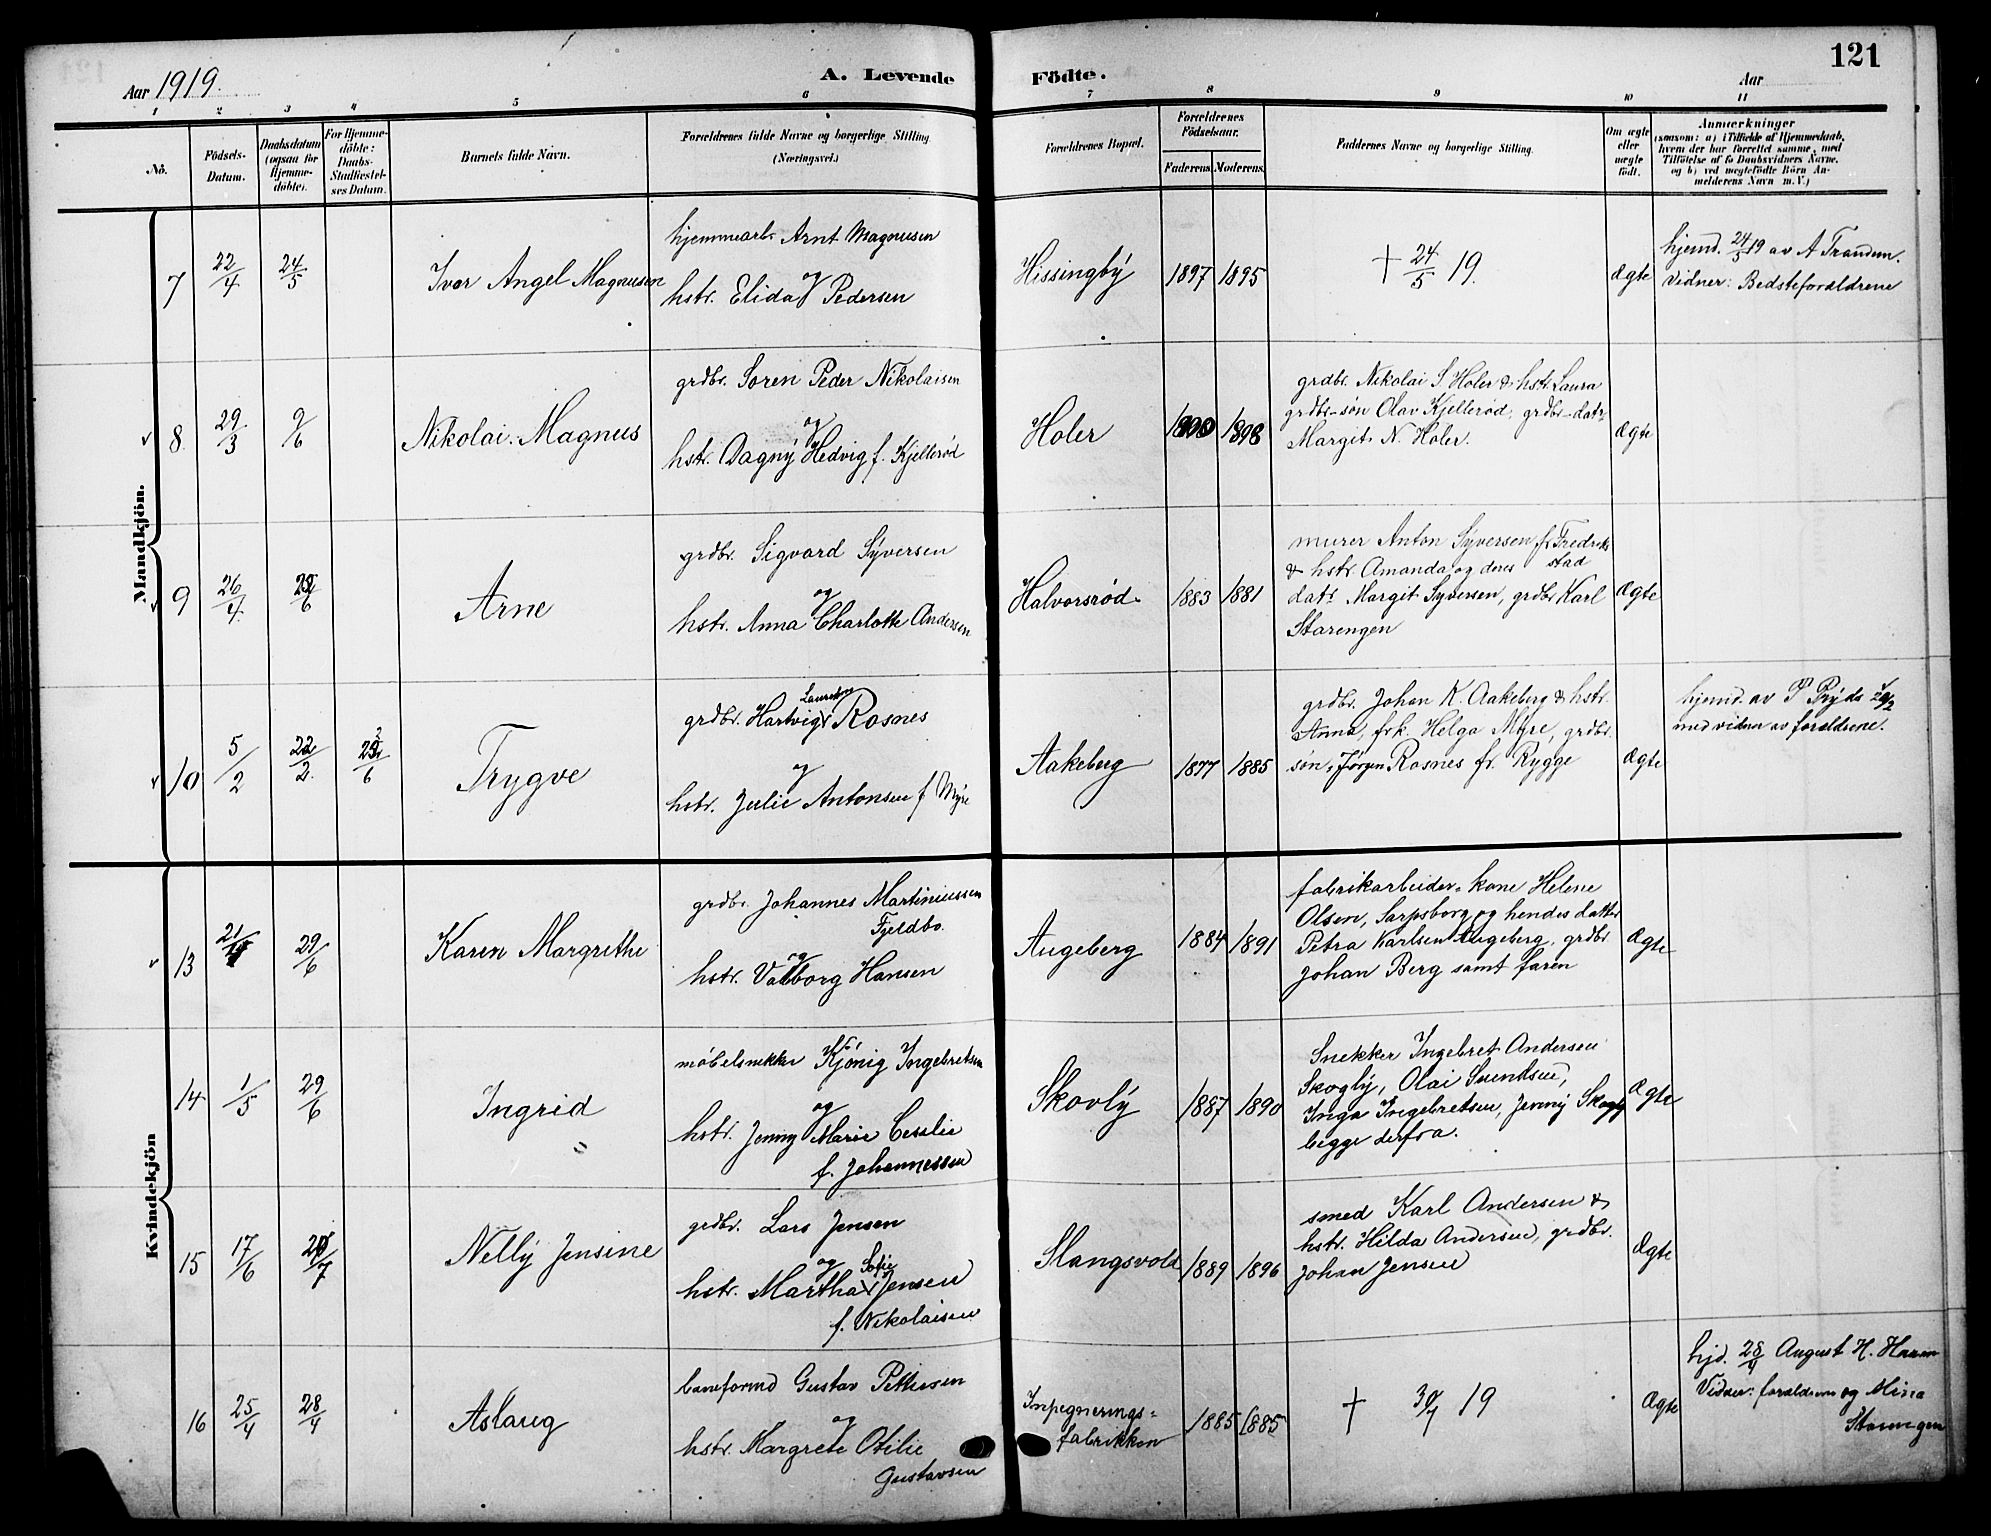 121
Aar 1919.
A. Levende Födte.
Aar
1 2 3 4 5 6 7 8 9 10 11
No.
Födsels-Datum.
Daabsdatum (ogsaa for Hjemme-döbte).
For Hjemme-döbte: Daabs-Stadfæstel-ses Datum.
Barnets fulde Navn.
Forældrenes fulde Navne og borgerlige Stilling (Næringsvei.)
Forældrenes Bopæl.
Forældrenes Födselsaar.
Faderens Moderens
Faddernes Navne og borgerlige Stilling.
Om ægte eller uægte födt.
Anmærkninger
(saasom: a) i Tilfælde af Hjemmedaab, hvem der har forrettet samme, med Tilföielse af to Daabsvidners Navne. og b) ved uegtefödte Börn An-melderens Navn m. V.)
Mandkjön.
7 22/4 24/5 Ivar Angel Magnusen
hjemmearb. Arnt Magnusen
og
hstr. Elida Pedersen
Hissingbý 1897 1895
† 24/5 19.
Ægte
hjemd. 24/5 19 av A Trandem.
Vidner: Bedsteforældrene
8 29/3 9/6 Nikolai Magnus
grdbr. Soren Peder Nikolaisen
og
hstr. Dagný Hedvig f. Kjellerød
Holer 1898
grdbr. Nikolai S Holer & hstr. Laura
grdbr-søn Olav Kjellerød, grdbr-datr
Margit N. Holer.
Ægte
9 26/4 Arne
grdbr. Sigvard Sýversen
og
hstr. Anna Charlotte Andersen
Halvorsrød 1883 1881
murer Anton Sýversen fr Fredrik
stad
& hstr. Amanda og deres
datr Margit Syversen, grdbr Karl
Starengen
Ægte
10 5/2 22/2 Trygve
Lauritz
grdbr. Hartvig Rosnes
og
hstr. Julie Antonsen f Mýre
Aakeberg 1877 1885
grdbr. Johan K. Aakeberg & hstr.
Anna, frk. Helga Myre, grdbr.
søn Jørgen Rosnes fr. Rygge
Ægte
hjemd. av P Prýds
med vidner av forældrene.
Kvindekjön
13 29/6 Karen Margrethe
grdbr. Johannes Martiniussen
Fjeldbo.
og
hstr. Valborg Hansen
Augeberg 1884 1891
fabrikarbeider-kone Helene
Olsen, Sarpsborg og hendes datter
Petra Karlsen Augeberg, grdbr
Johan Berg samt faren
Ægte
14 1/5 29/6 Ingrid
møbelsnekker Kjönig Ingebretsen
og
hstr. Jenny Marie Cesslie
f. Johannessen
Skovlý 1887 1890
Snekker Ingebret Andersen
Skoglý, Olai Svendsen,
Inga Ingebretsen, Jenny Skogly
begge derfra.
Ægte
15 17/6 Nellý Jensine
grdbr. Lars Jensen
og Sofie
hstr. Martha Jensen
f. Nikolaisen
Slangsvold 1889 1896
smed Karl Andersen &
hstr. Hilda Andersen, grdbr.
Johan Jensen
Ægte
16 25/4 28/4 Aslaug
baneformd Gustav Pettersen
og
hstr. Margrete Otilie
Gustavsen
Inpegnerings=
fabrikken
1885 1885
† 30/4 19
Ægte
hjd. 28/4 August H. Hansen
Vidner: forældrene og Mina
Starengen